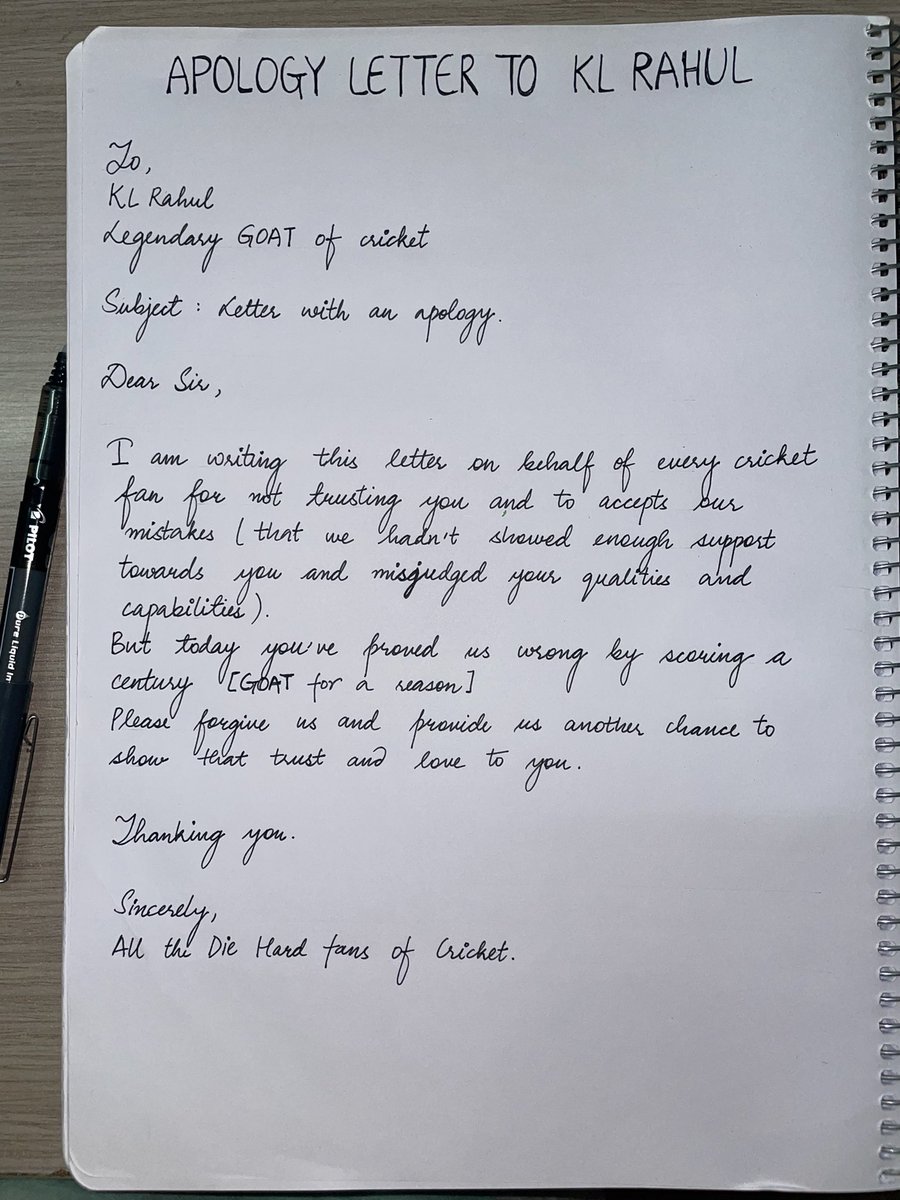 APOLOGY LETTER TO KL RAHUL
To,
KL Rahul
Legendary GOAT of cricket
Subject : Letter with an apology.
Dear Sir,
I am writing this letter on behalf of every cricket
fan for not trusting you and to accepts our
mistakes (that we hadn't showed enough support
towards you and misjudged your qualities and
capabilities).
But today you've proved us wrong by scoring a
century [GOAT for a reason]
Please forgive us and provide us another chance to
show that trust and love to you.
Thanking you.
Sincerely,
All the Die Hard fans of Cricket.
PILOT
Pure Liquid In